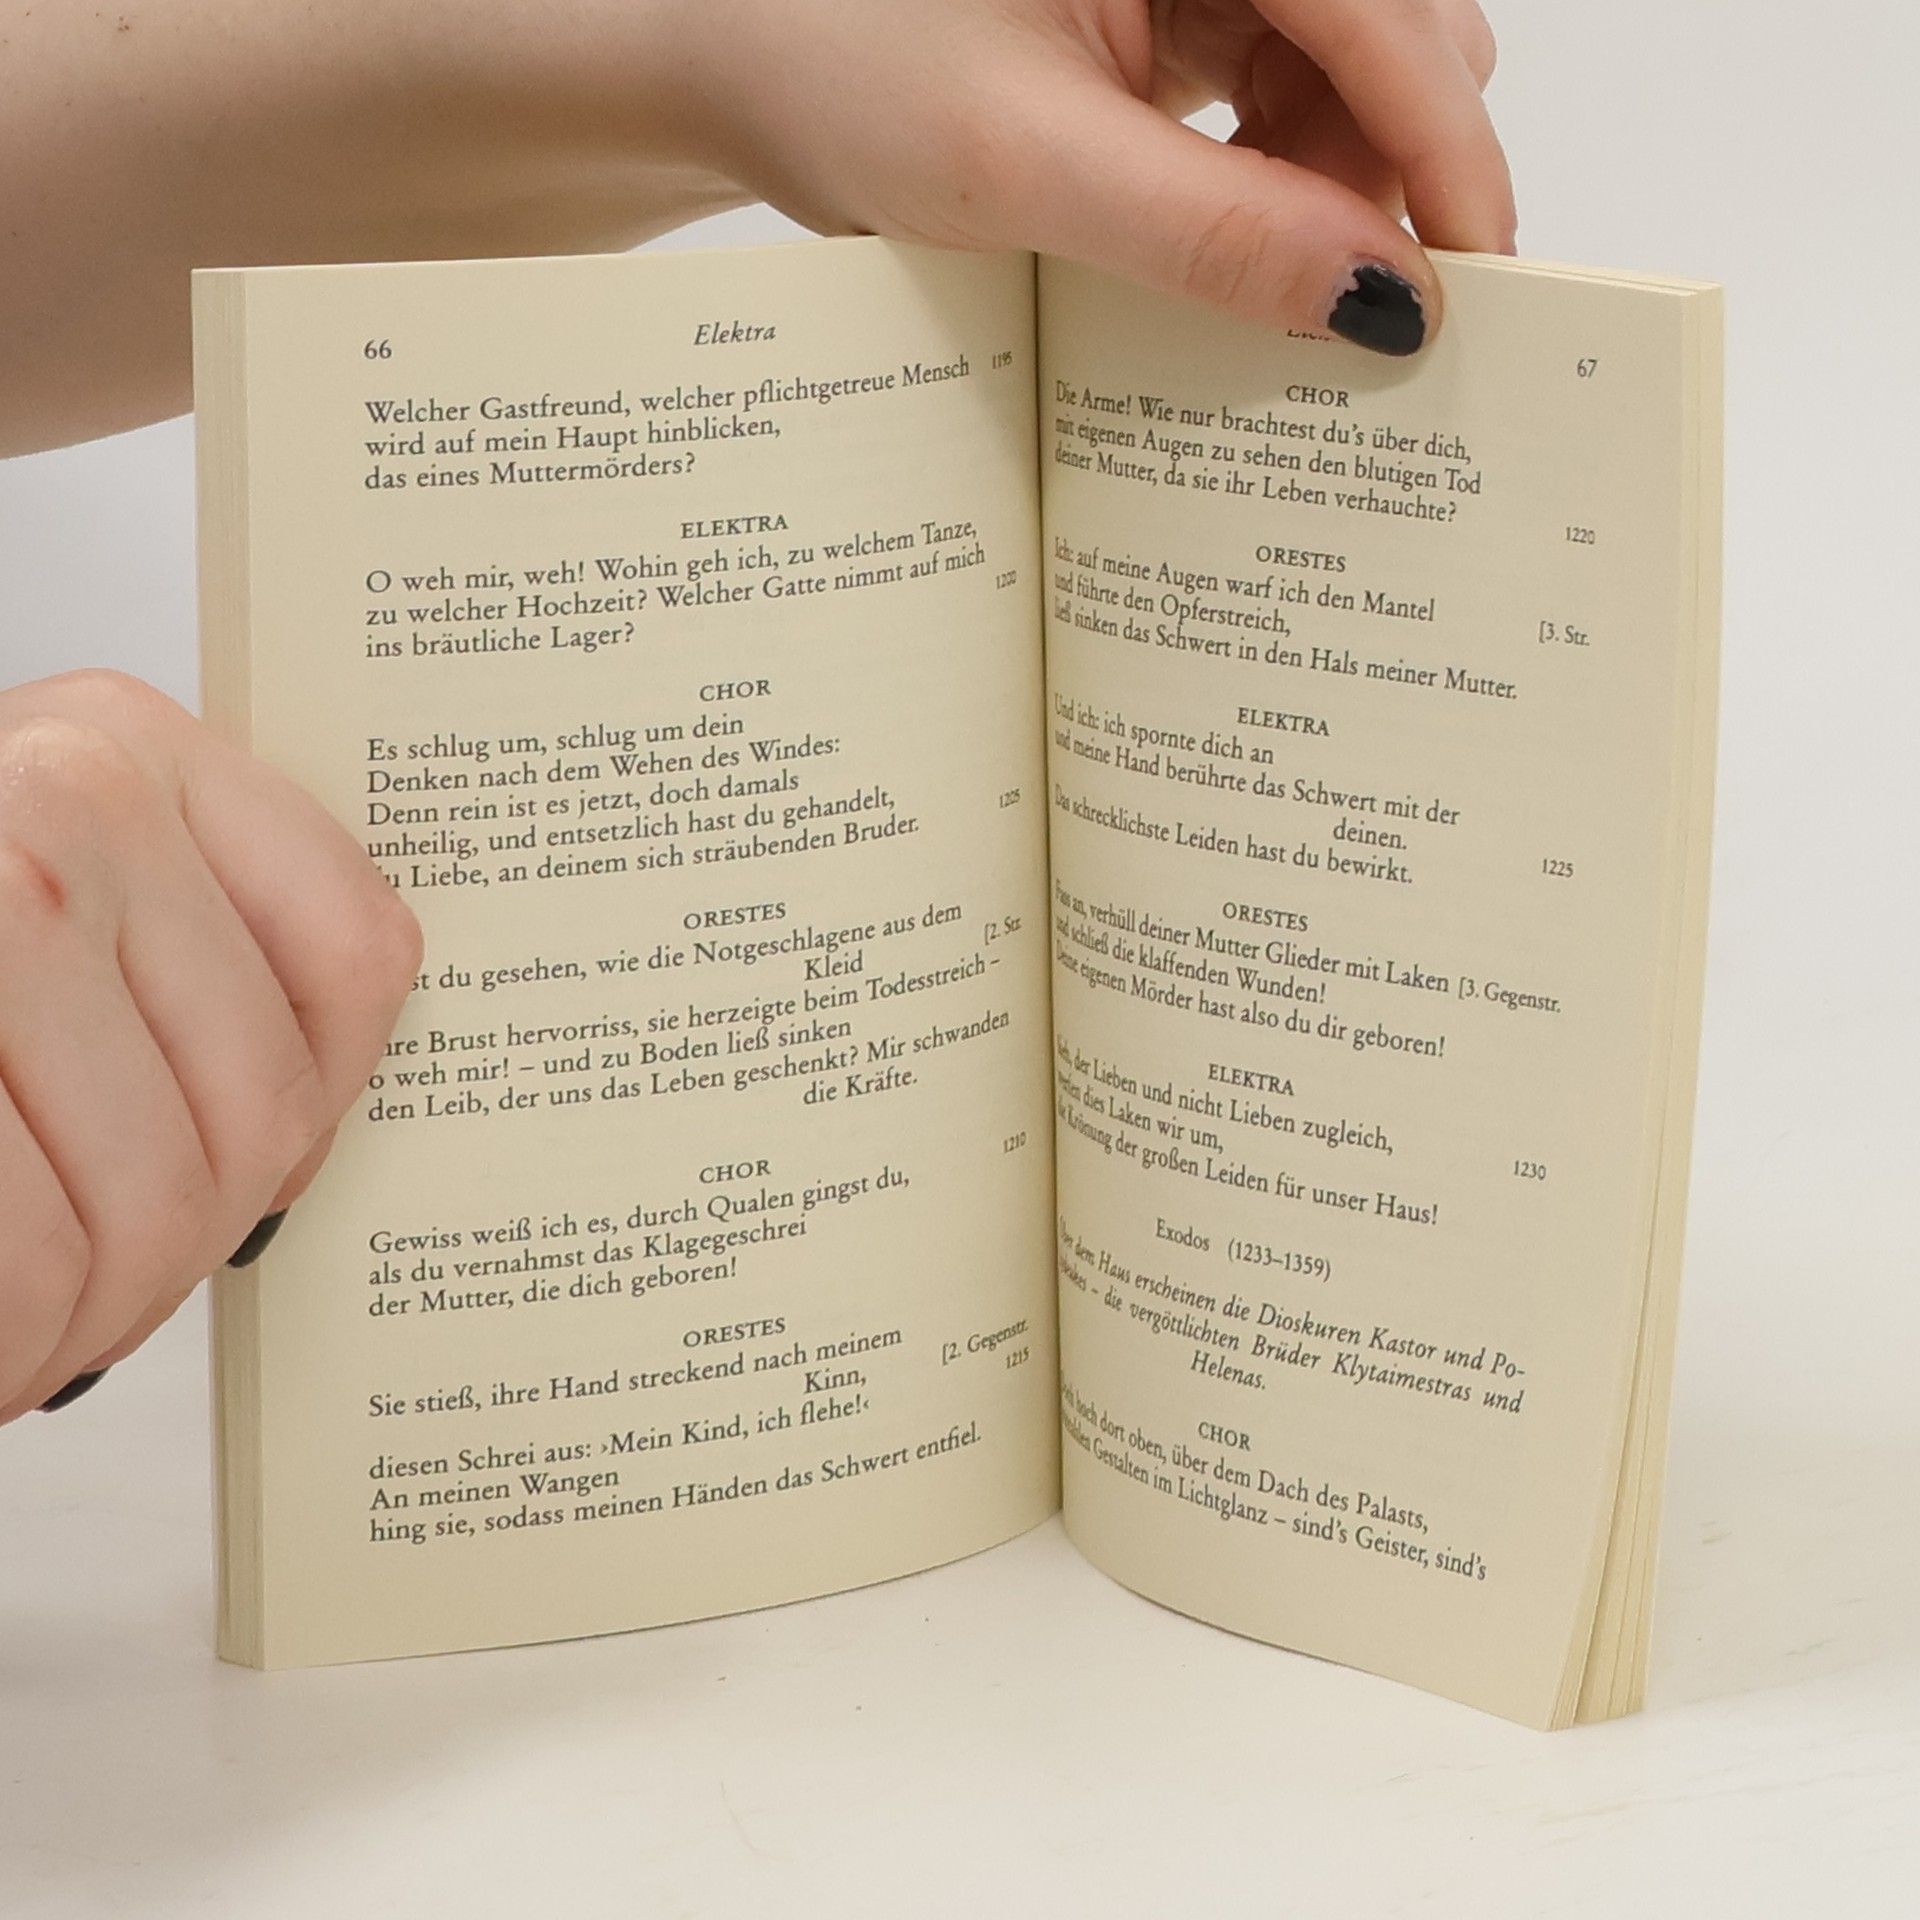 66
Elektra
Welcher Gastfreund, welcher pflichtgetreue Mensch 1195
wird auf mein Haupt hinblicken,
das eines Muttermörders?
ELEKTRA
O weh mir, weh! Wohin geh ich, zu welchem Tanze,
zu welcher Hochzeit? Welcher Gatte nimmt auf mich 1200
ins bräutliche Lager?
CHOR
Es schlug um, schlug um dein
Denken nach dem Wehen des Windes:
Denn rein ist es jetzt, doch damals
unheilig, und entsetzlich hast du gehandelt, 1205
Liebe, an deinem sich sträubenden Bruder.
ORESTES
du gesehen, wie die Notgeschlagene aus dem [2. Str.
Kleid
Brust hervorriss, sie herzeigte beim Todesstreich –
o weh mir! – und zu Boden ließ sinken
den Leib, der uns das Leben geschenkt? Mir schwanden
die Kräfte.
1210
CHOR
Gewiss weiß ich es, durch Qualen gingst du,
als du vernahmst das Klagegeschrei
der Mutter, die dich geboren!
ORESTES
Sie stieß, ihre Hand streckend nach meinem [2. Gegenstr.
Kinn, 1215
diesen Schrei aus: ›Mein Kind, ich flehe!‹
An meinen Wangen
hing sie, sodass meinen Händen das Schwert entfiel.
67
CHOR
Die Arme! Wie nur brachtest du's über dich,
mit eigenen Augen zu sehen den blutigen Tod
deiner Mutter, da sie ihr Leben verhauchte?
1220
ORESTES
Ich: auf meine Augen warf ich den Mantel
und führte den Opferstreich, [3. Str.
ließ sinken das Schwert in den Hals meiner Mutter.
ELEKTRA
Und ich: ich spornte dich an
und meine Hand berührte das Schwert mit der
deinen.
Das schrecklichste Leiden hast du bewirkt. 1225
ORESTES
Fass an, verhüll deiner Mutter Glieder mit Laken [3. Gegenstr.
und schließ die klaffenden Wunden!
Deine eigenen Mörder hast also du dir geboren!
ELEKTRA
der Lieben und nicht Lieben zugleich,
werfen dies Laken wir um, 1230
die Krönung der großen Leiden für unser Haus!
Exodos (1233–1359)
Über dem Haus erscheinen die Dioskuren Kastor und Po-
– die vergöttlichten Brüder Klytaimestras und
Helenas.
CHOR
hoch dort oben, über dem Dach des Palasts,
Gestalten im Lichtglanz – sind's Geister, sind's